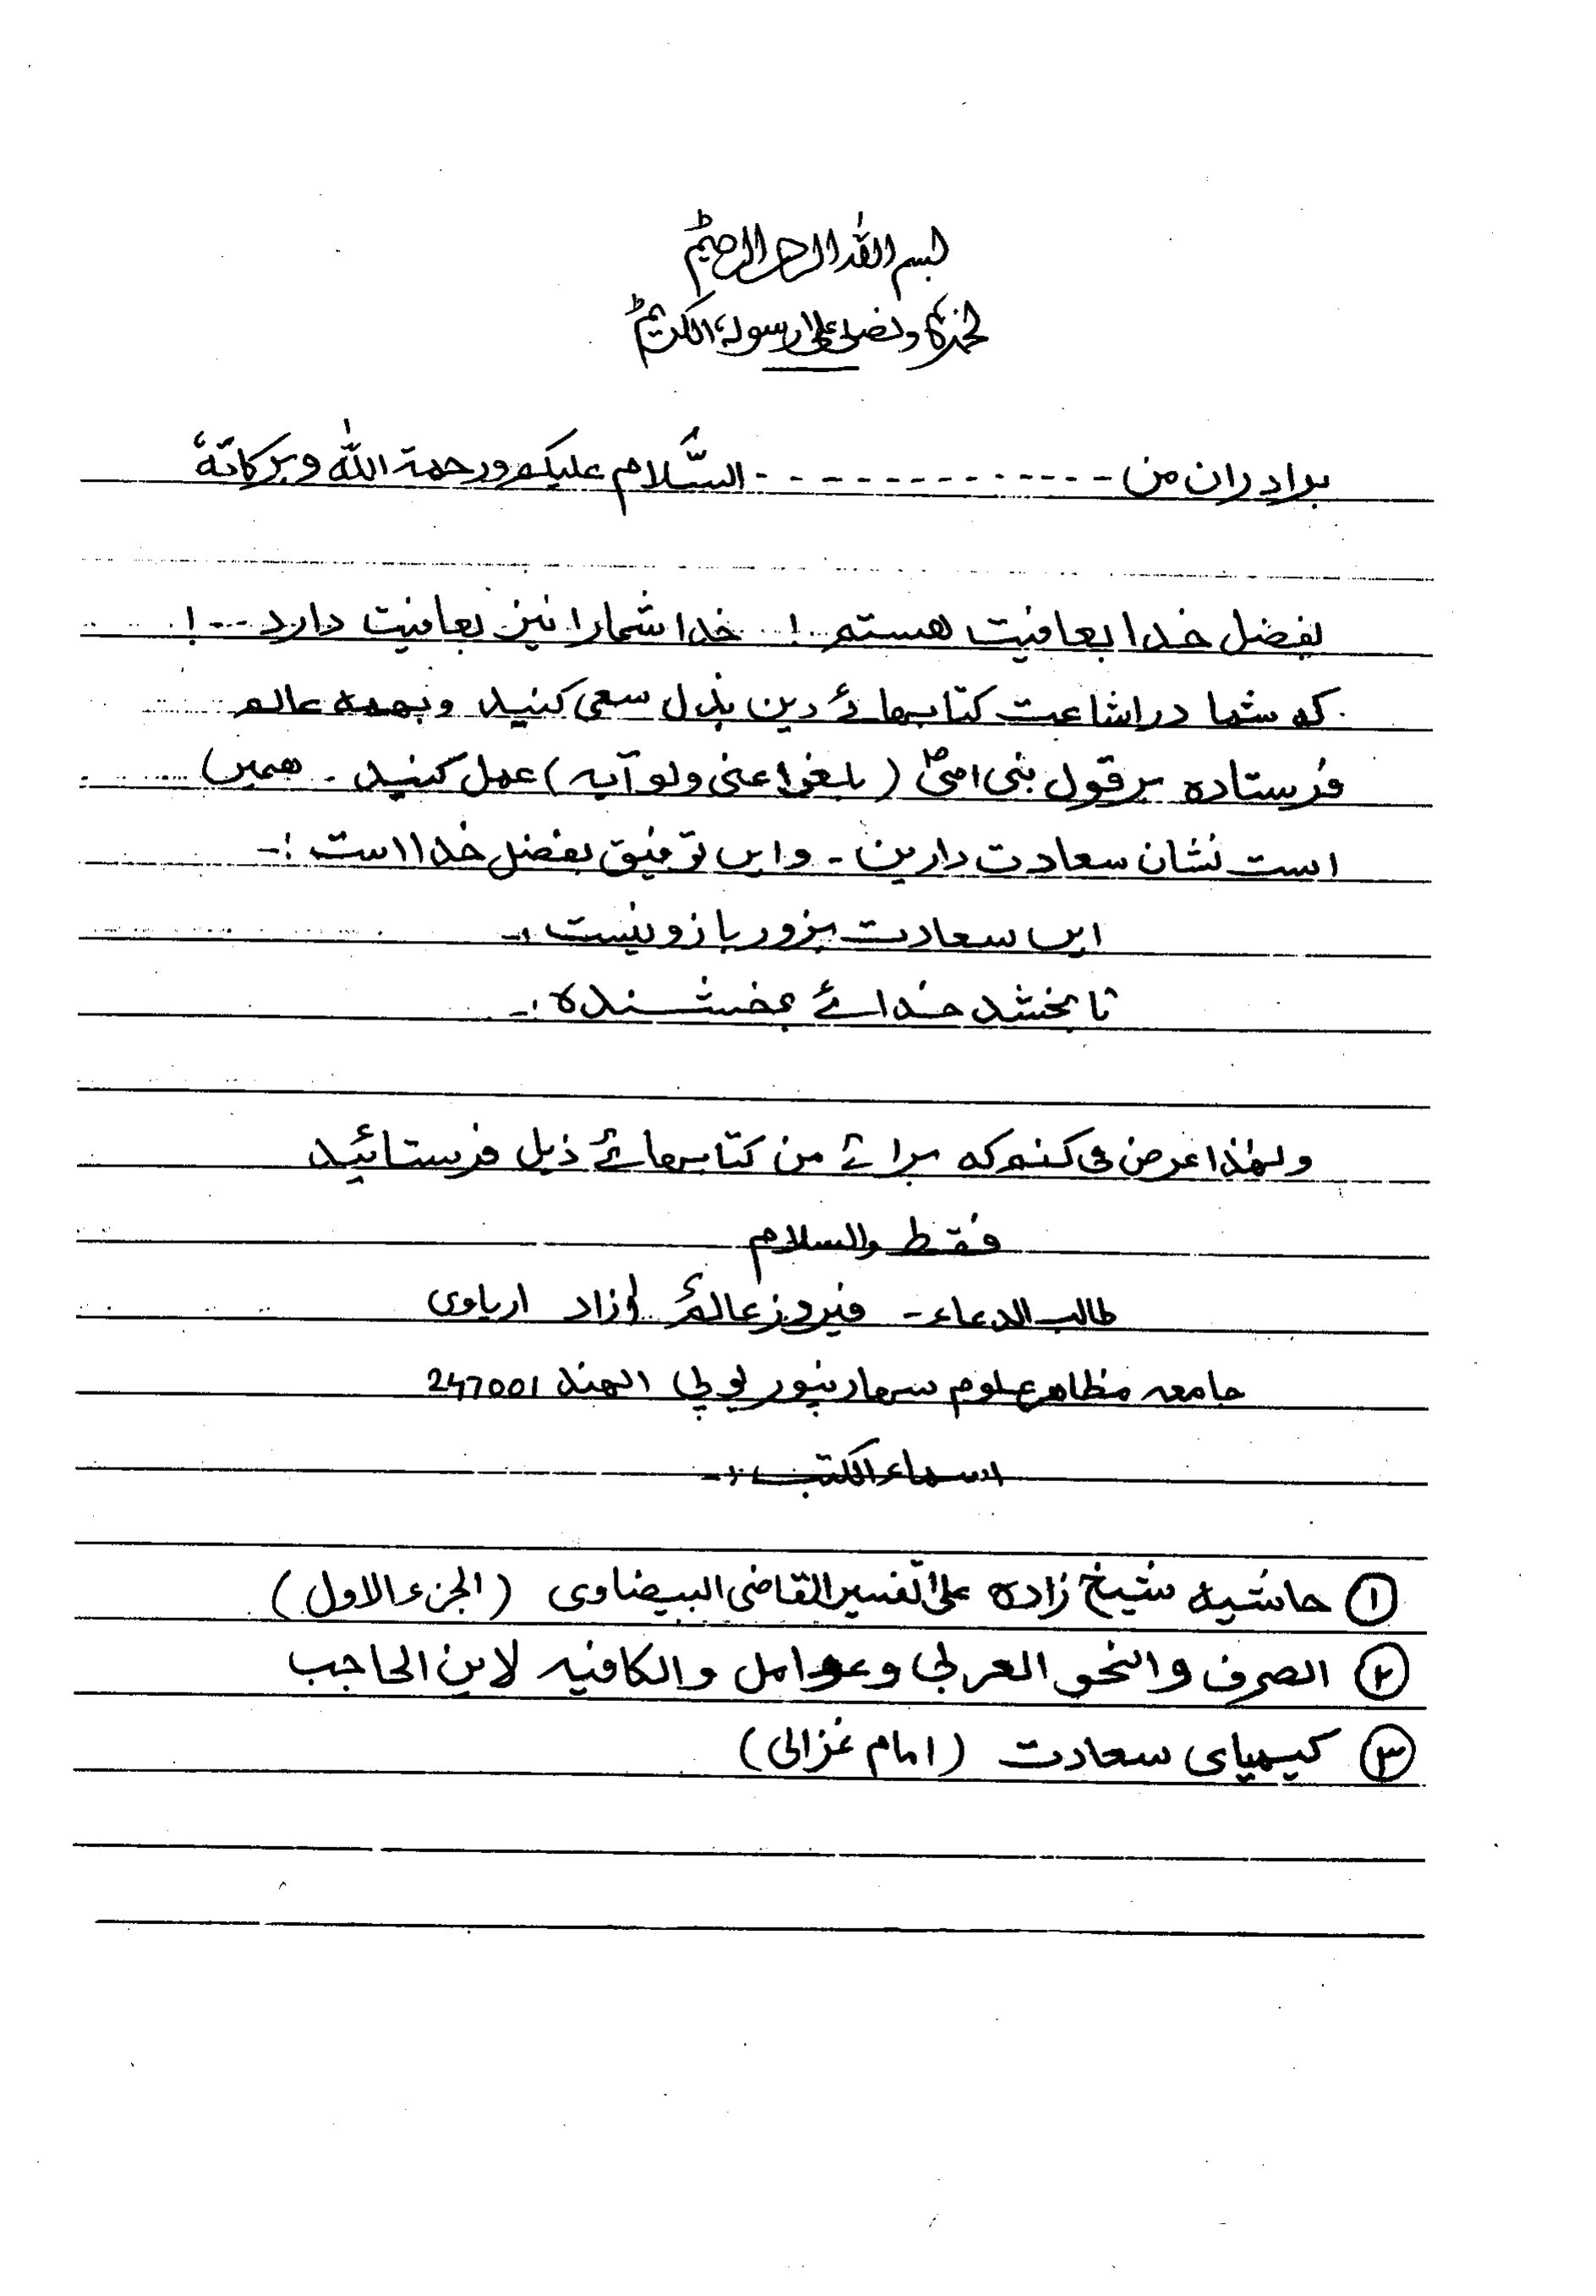 بسم الله الرحمن الرحیم
نحمدہ ونصلی علی رسولہ الکریم
برادران من ------------ السَّلام علیکم ورحمۃ اللہ وبرکاتہٗ
بفضل خدا بعافیت هستم ! خدا شمارا نیز بعافیت دارد --- !
که شما در اشاعت کتابهائے دین بذل سعی کنید وبهمه عالم
فرستاده برقول نبی امیؐ (بلغوا عنی ولو آیه) عمل کنید ۔ همیں
است نشان سعادت دارین ۔ وایں توفیق بفضل خدا است :-
ایں سعادت بزور بازو نیست :-
تا بخشد خدائے بخشنده :-
ولهٰذا عرض می کنم که برائے من کتابهائے ذیل فرستائید
فقط والسلام
طالب الدعاء - فیروز عالم آزاد اریاوی
جامعہ مظاهر علوم سهارنپور یوپی الهند 247001
اسماء الکتب :-
① حاشیه شیخ زاده علی تفسیر القاضی البیضاوی (الجزء الاول)
② الصرف والنحو العربی وعوامل والکافیه لابن الحاجب
③ کیمیای سعادت (امام غزالی)